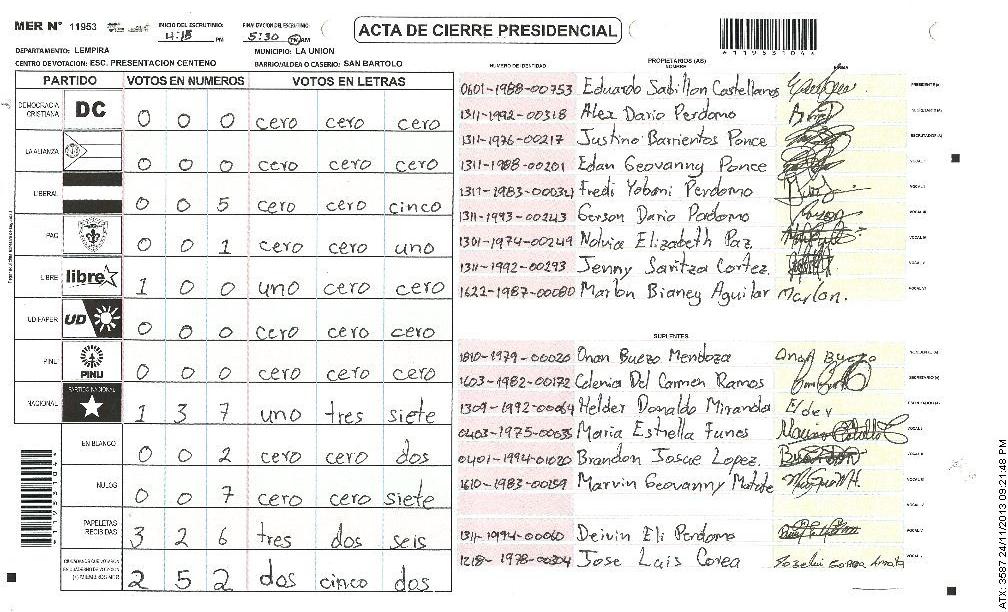 MER N° 11953
INICIO DEL ESCRUTINIO: 4:15 PM
FINALIZACION DEL ESCRUTINIO: 5:30 AM
ACTA DE CIERRE PRESIDENCIAL
DEPARTAMENTO: LEMPIRA
MUNICIPIO: LA UNION
CENTRO DE VOTACION: ESC. PRESENTACION CENTENO
BARRIO/ALDEA O CASERIO: SAN BARTOLO
PARTIDO VOTOS EN NUMEROS VOTOS EN LETRAS
DEMOCRACIA CRISTIANA DC 0 0 0 cero cero cero
LA ALIANZA 0 0 0 cero cero cero
LIBERAL 0 0 5 cero cero cinco
PAC 0 0 1 cero cero uno
LIBRE libre 1 0 0 uno cero cero
UD/FAPER UD 0 0 0 cero cero cero
PINU PINU 0 0 0 cero cero cero
NACIONAL PARTIDO NACIONAL 1 3 7 uno tres siete
EN BLANCO 0 0 2 cero cero dos
NULOS 0 0 7 cero cero siete
PAPELETAS RECIBIDAS 3 2 6 tres dos seis
2 5 2 dos cinco dos
NUMERO DE IDENTIDAD PROPIETARIOS (AS) NOMBRE FIRMA
0601-1988-00753 Eduardo Sabillon Castellanos PRESIDENTE (A)
1311-1992-00318 Alex Dario Perdomo SECRETARIO (A)
1311-1976-00217 Justino Barrientos Ponce ESCRUTADOR (A)
1311-1988-00201 Edan Geovanny Ponce VOCAL I
Fredi Yobani Perdomo VOCAL II
1311-1993-00243 Gerson Dario Perdomo VOCAL III
1301-1974-00249 Nolvia Elizabeth Paz VOCAL IV
1311-1992-00293 Jenny Saritza Cortez VOCAL V
1622-1987-00080 Marlon Bianey Aguilar Marlon. VOCAL VI
SUPLENTES
1810-1979-00020 Onan Buezo Mendoza Onan Buezo PRESIDENTE (A)
1603-1982-00172 Celenia Del Carmen Ramos SECRETARIO (A)
1309-1992-00064 Helder Donaldo Miranda Elder ESCRUTADOR (A)
0403-1975-00035 Maria Estrella Funes VOCAL I
0401-1994-01020 Brandon Josue Lopez. VOCAL II
1610-1983-00259 Marvin Geovanny VOCAL III
1311-1994-00060 Deivin Eli Perdomo VOCAL V
1218-1978-00304 Jose Luis Corea
ATX: 3587 24/11/2013 09:21:48 PM